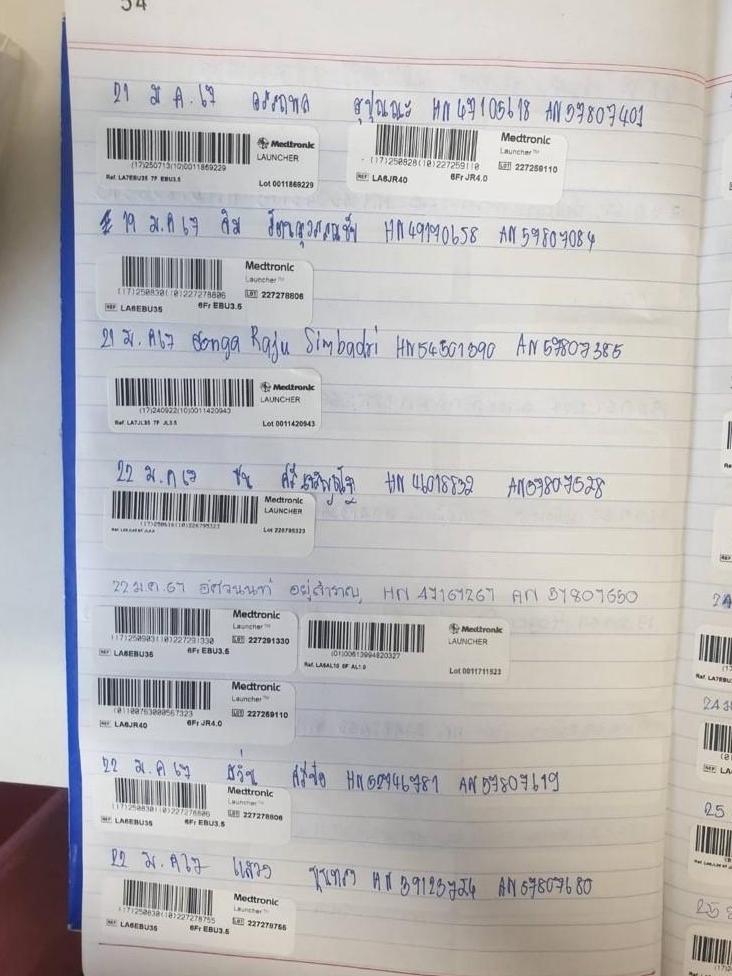 54
21 ม.ค. 67 HN 47105618 AN 57807401
Medtronic
LAUNCHER
(17)250713(10)0011869229
Ref. LA7EBU35 7F EBU3.5
Lot 0011869229
Medtronic
Launcher™
(17)250828(10)227259110
LOT 227259110
REF LA6JR40 6Fr JR4.0
19 ม.ค 67 HN 49190658 AN 57807084
Medtronic
Launcher™
(17)250830(10)227278806
LOT 227278806
REF LA6EBU35 6Fr EBU3.5
21 ม.ค 67 Raju Simbadri HN 54501390 AN 57807385
Medtronic
LAUNCHER
(17)240922(10)0011420943
Ref. LA7JL35 7F JL3.5
Lot 0011420943
22 ม.ค 67 HN 46018832 AN 57807528
Medtronic
LAUNCHER
Lot 226795323
22 ม.ค. 67 อัศวนนท์ อยู่สำราญ HN 47167267 AN 57807650
Medtronic
Launcher™
(17)250903(10)227291330
LOT 227291330
REF LA6EBU35 6Fr EBU3.5
Medtronic
LAUNCHER
(01)00613994820327
Ref. LA6AL10 6F AL1.0
Lot 0011711523
Medtronic
Launcher™
(01)00763000567323
LOT 227259110
REF LA6JR40 6Fr JR4.0
22 ม.ค 67 HN 52946781 AN 57807619
Medtronic
Launcher™
(17)250830(10)227278806
LOT 227278806
REF LA6EBU35 6Fr EBU3.5
22 ม.ค 67 HN 39123724 AN 57807680
Medtronic
Launcher™
(17)250830(10)227278755
LOT 227278755
REF LA6EBU35 6Fr EBU3.5
24
25